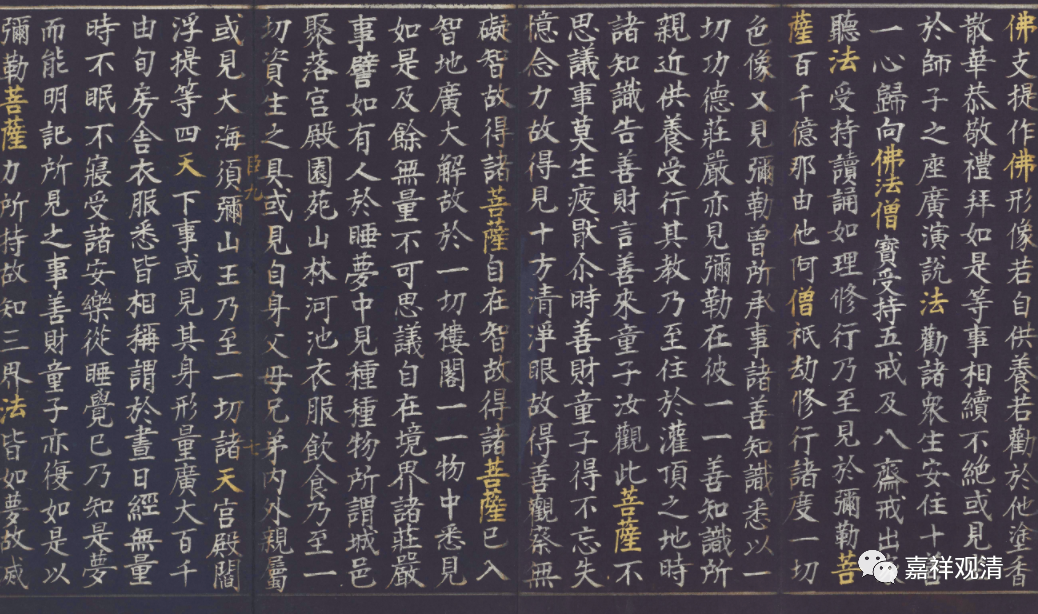 佛支提作佛形像若自供養若勸於他塗香
散華恭敬禮拜如是等事相續不絕或見
於師子之座廣演說法勸諸衆生安住十
一心歸向佛法僧寶受持五戒及八齋戒出
聽法受持讀誦如理修行乃至見於彌勒菩
薩百千億那由他阿僧祇劫修行諸度一切
色像又見彌勒曾所承事諸善知識悉以一
切功德莊嚴亦見彌勒在彼一一善知識所
親近供養受行其教乃至住於灌頂之地時
諸知識告善財言善來童子汝觀此菩薩不
思議事莫生疲猒尒時善財童子得不忘失
憶念力故得見十方清淨眼故得善觀察無
礙智故得諸菩薩自在智故得諸菩薩已入
智地廣大解故於一切樓閣一一物中悉見
如是及餘無量不可思議自在境界諸莊嚴
事譬如有人於睡夢中見種種物所謂城邑
聚落宮殿園苑山林河池衣服飲食乃至一
切資生之具或見自身父母兄弟內外親屬
臣九
七
或見大海須彌山王乃至一切諸天宮殿閻
浮提等四天下事或見其身形量廣大百千
由旬房舍衣服悉皆相稱謂於晝日經無量
時不眠不寢受諸安樂從睡覺已乃知是夢
而能明記所見之事善財童子亦復如是以
彌勒菩薩力所持故知三界法皆如夢故滅
嘉祥观清